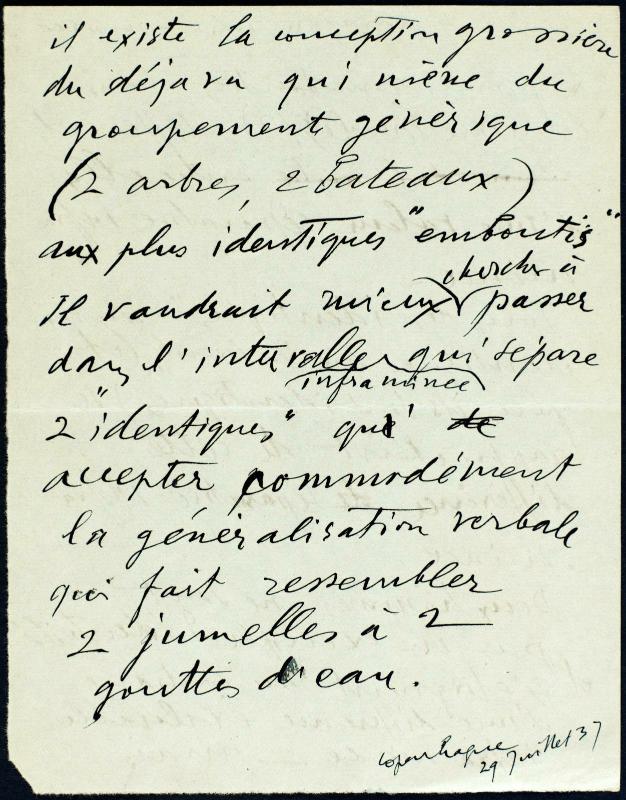 il existe la conception grossière
du déjà vu qui mène du
groupement générique
(2 arbres, 2 bateaux)
aux plus identiques "emboutis"
chercher à
Il vaudrait mieux passer
dans l'intervalle qui sépare
inframince
2 "identiques" qu' de
accepter commodément
la généralisation verbale
qui fait ressembler
2 jumelles à 2
gouttes d'eau.
copenhague
29 Juillet 37